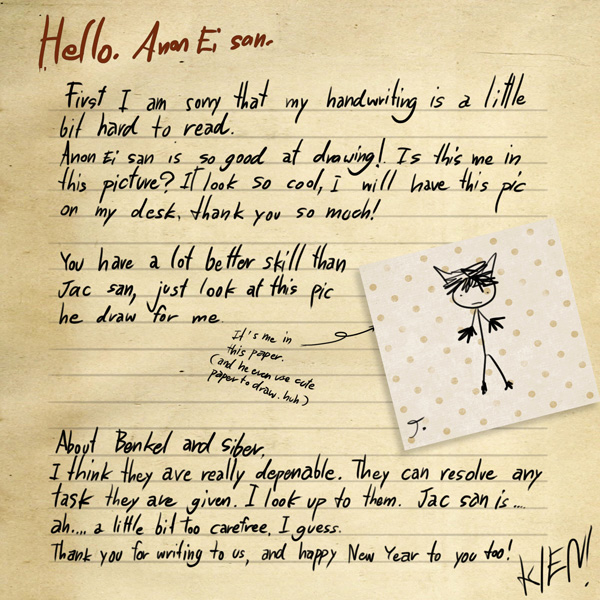 Hello. Anon Ei san.
First I am sorry that my handwriting is a little
bit hard to read.
Anon Ei san is so good at drawing! Is this me in
this picture? It look so cool, I will have this pic
on my desk, thank you so much!
You have a lot better skill than
Jac san, just look at this pic
he draw for me
It's me in
this paper.
(and he even use cute
paper to draw. huh)
J.
About Benkel and Siber,
I think they are really deponable. They can resolve any
task they are given. I look up to them. Jac san is....
ah.... a little bit too carefree, I guess.
Thank you for writing to us, and happy New Year to you too!
KIEN!